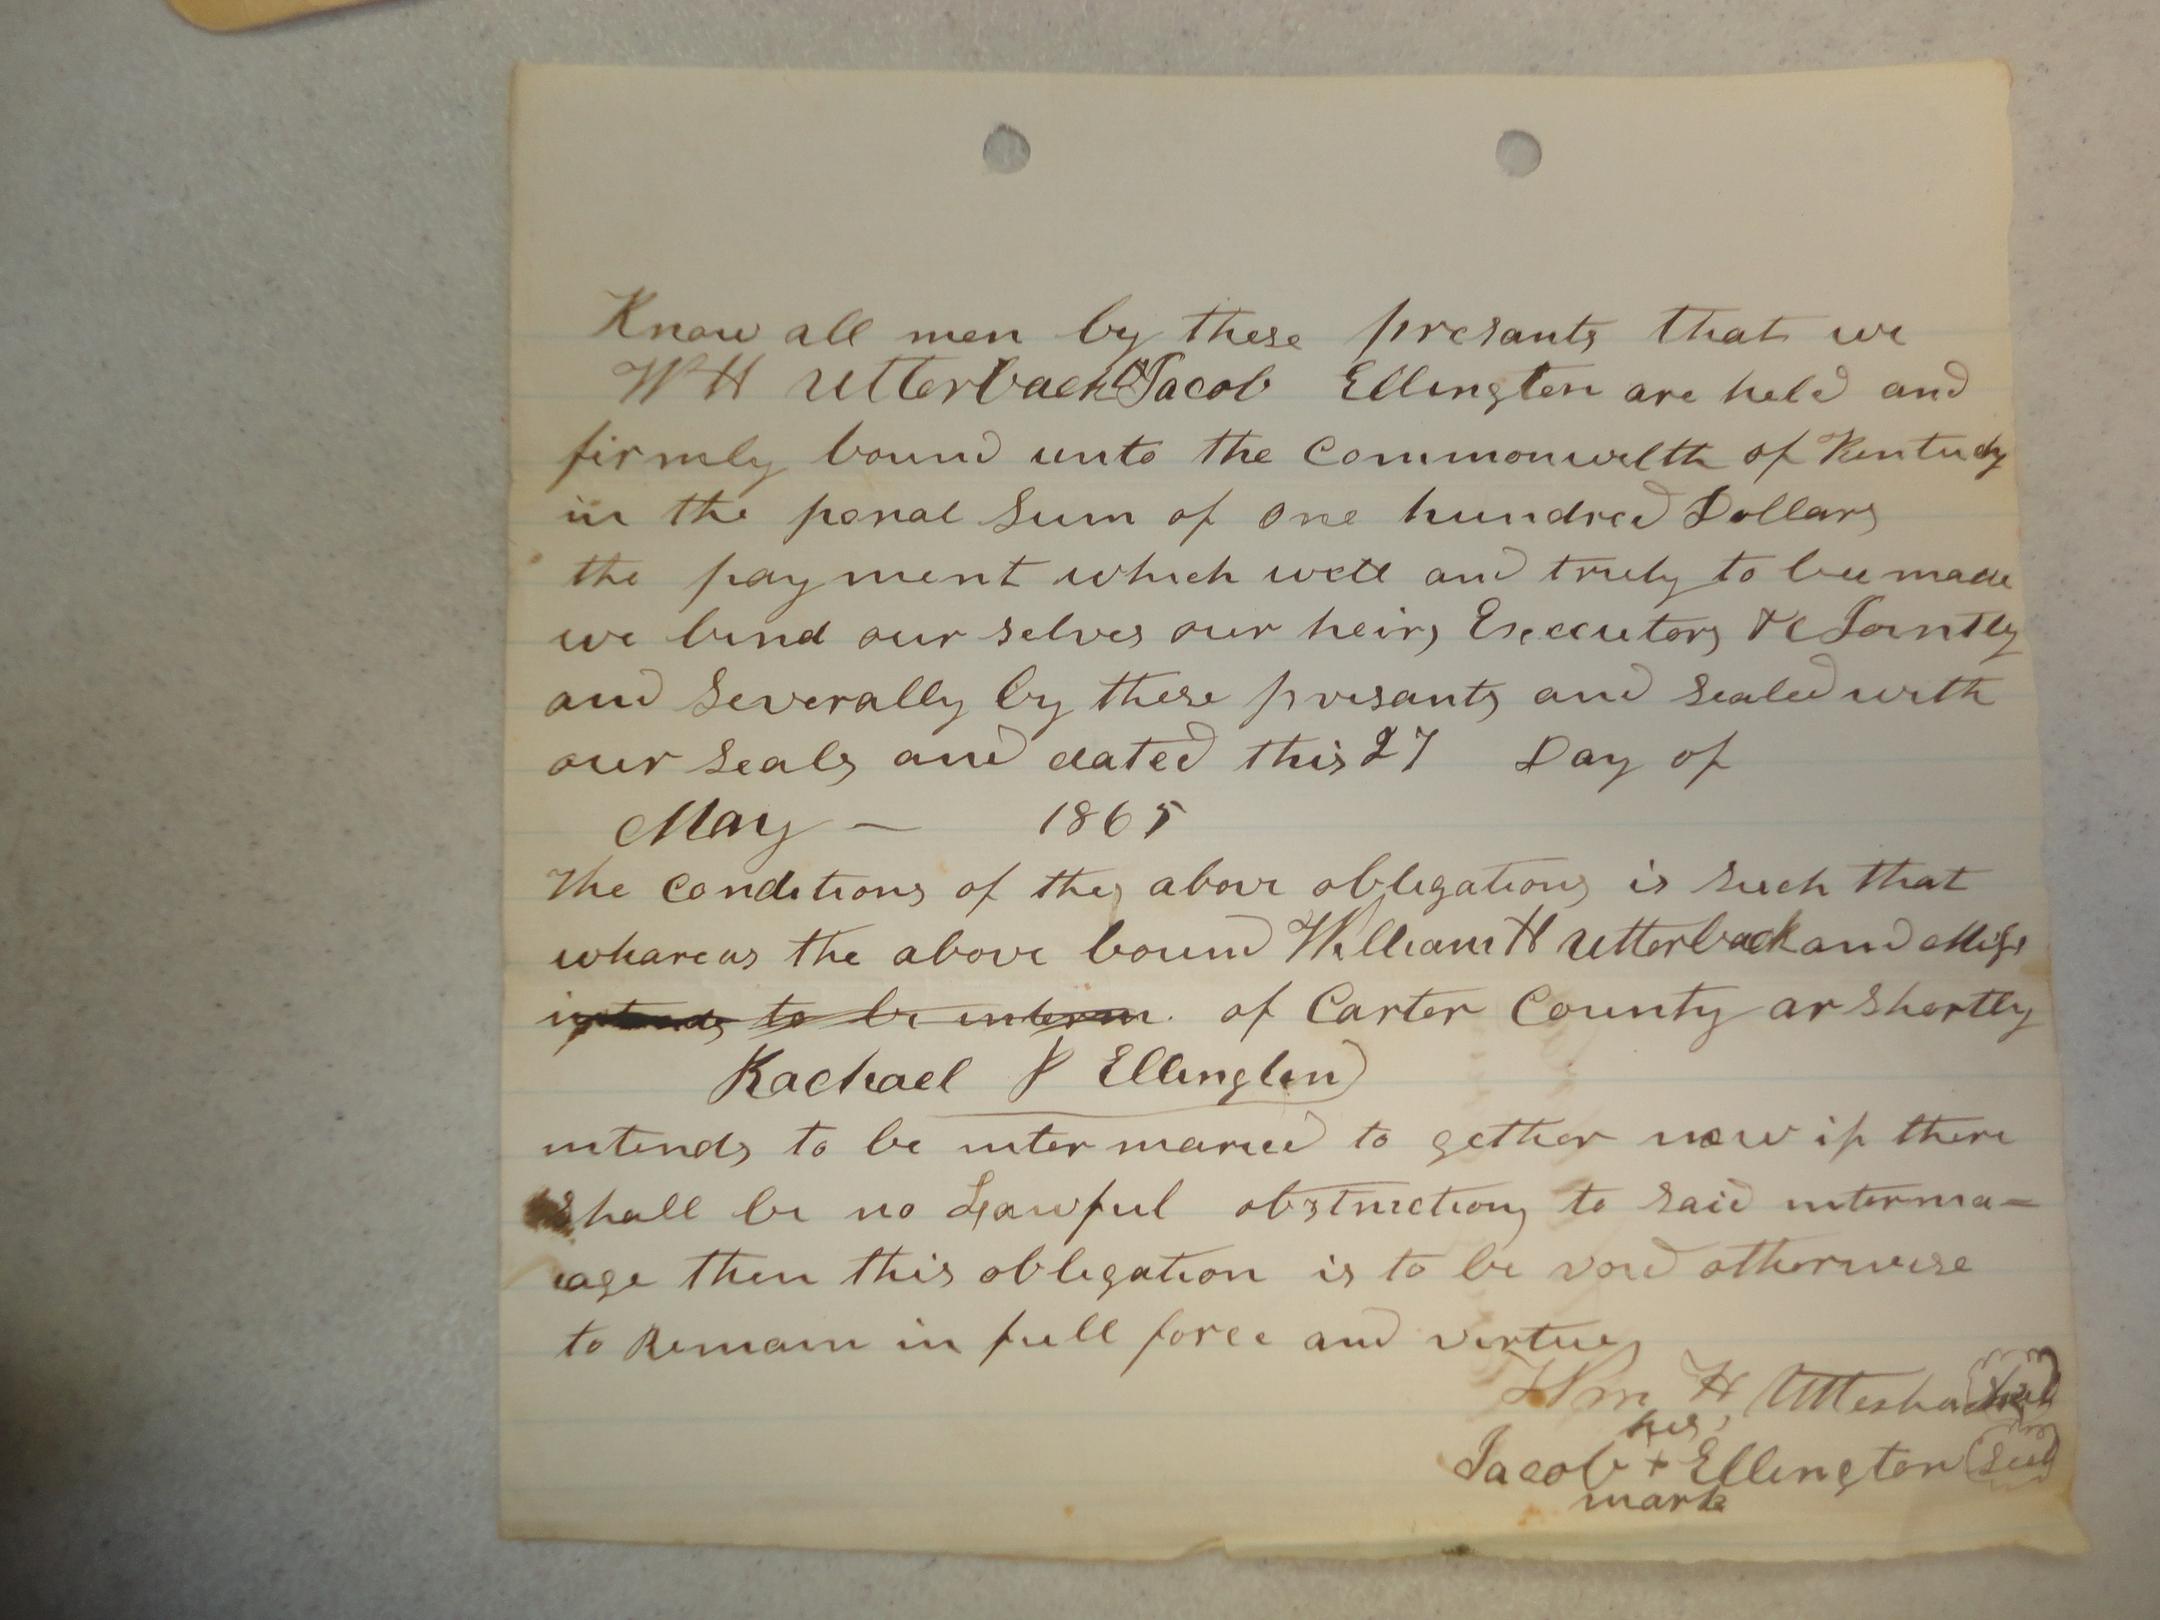 Know all men by these presants that we
W H Utterback & Jacob Ellington are held and
firmly bound unto the Commonwelth of Kentucky
in the penal Sum of One hundred Dollars
the payment which well and truly to bee made
we bind our selves our heirs Executors &c Jointly
and Severally by these presants and sealed with
our Seals and dated this 27 Day of
May — 1865
The Conditions of the above obligations is such that
whareas the above bound William H Utterback and Miss
intends to be interm. of Carter County ar shortly
Rachael P Ellington
intends to be inter maried to gether now if there
Shall be no Lawful obstructions to said interma-
age then this obligation is to be void otherwise
to Remain in full force and virtue
Wm H Utterback Seal
his
Jacob + Ellington Seal
mark